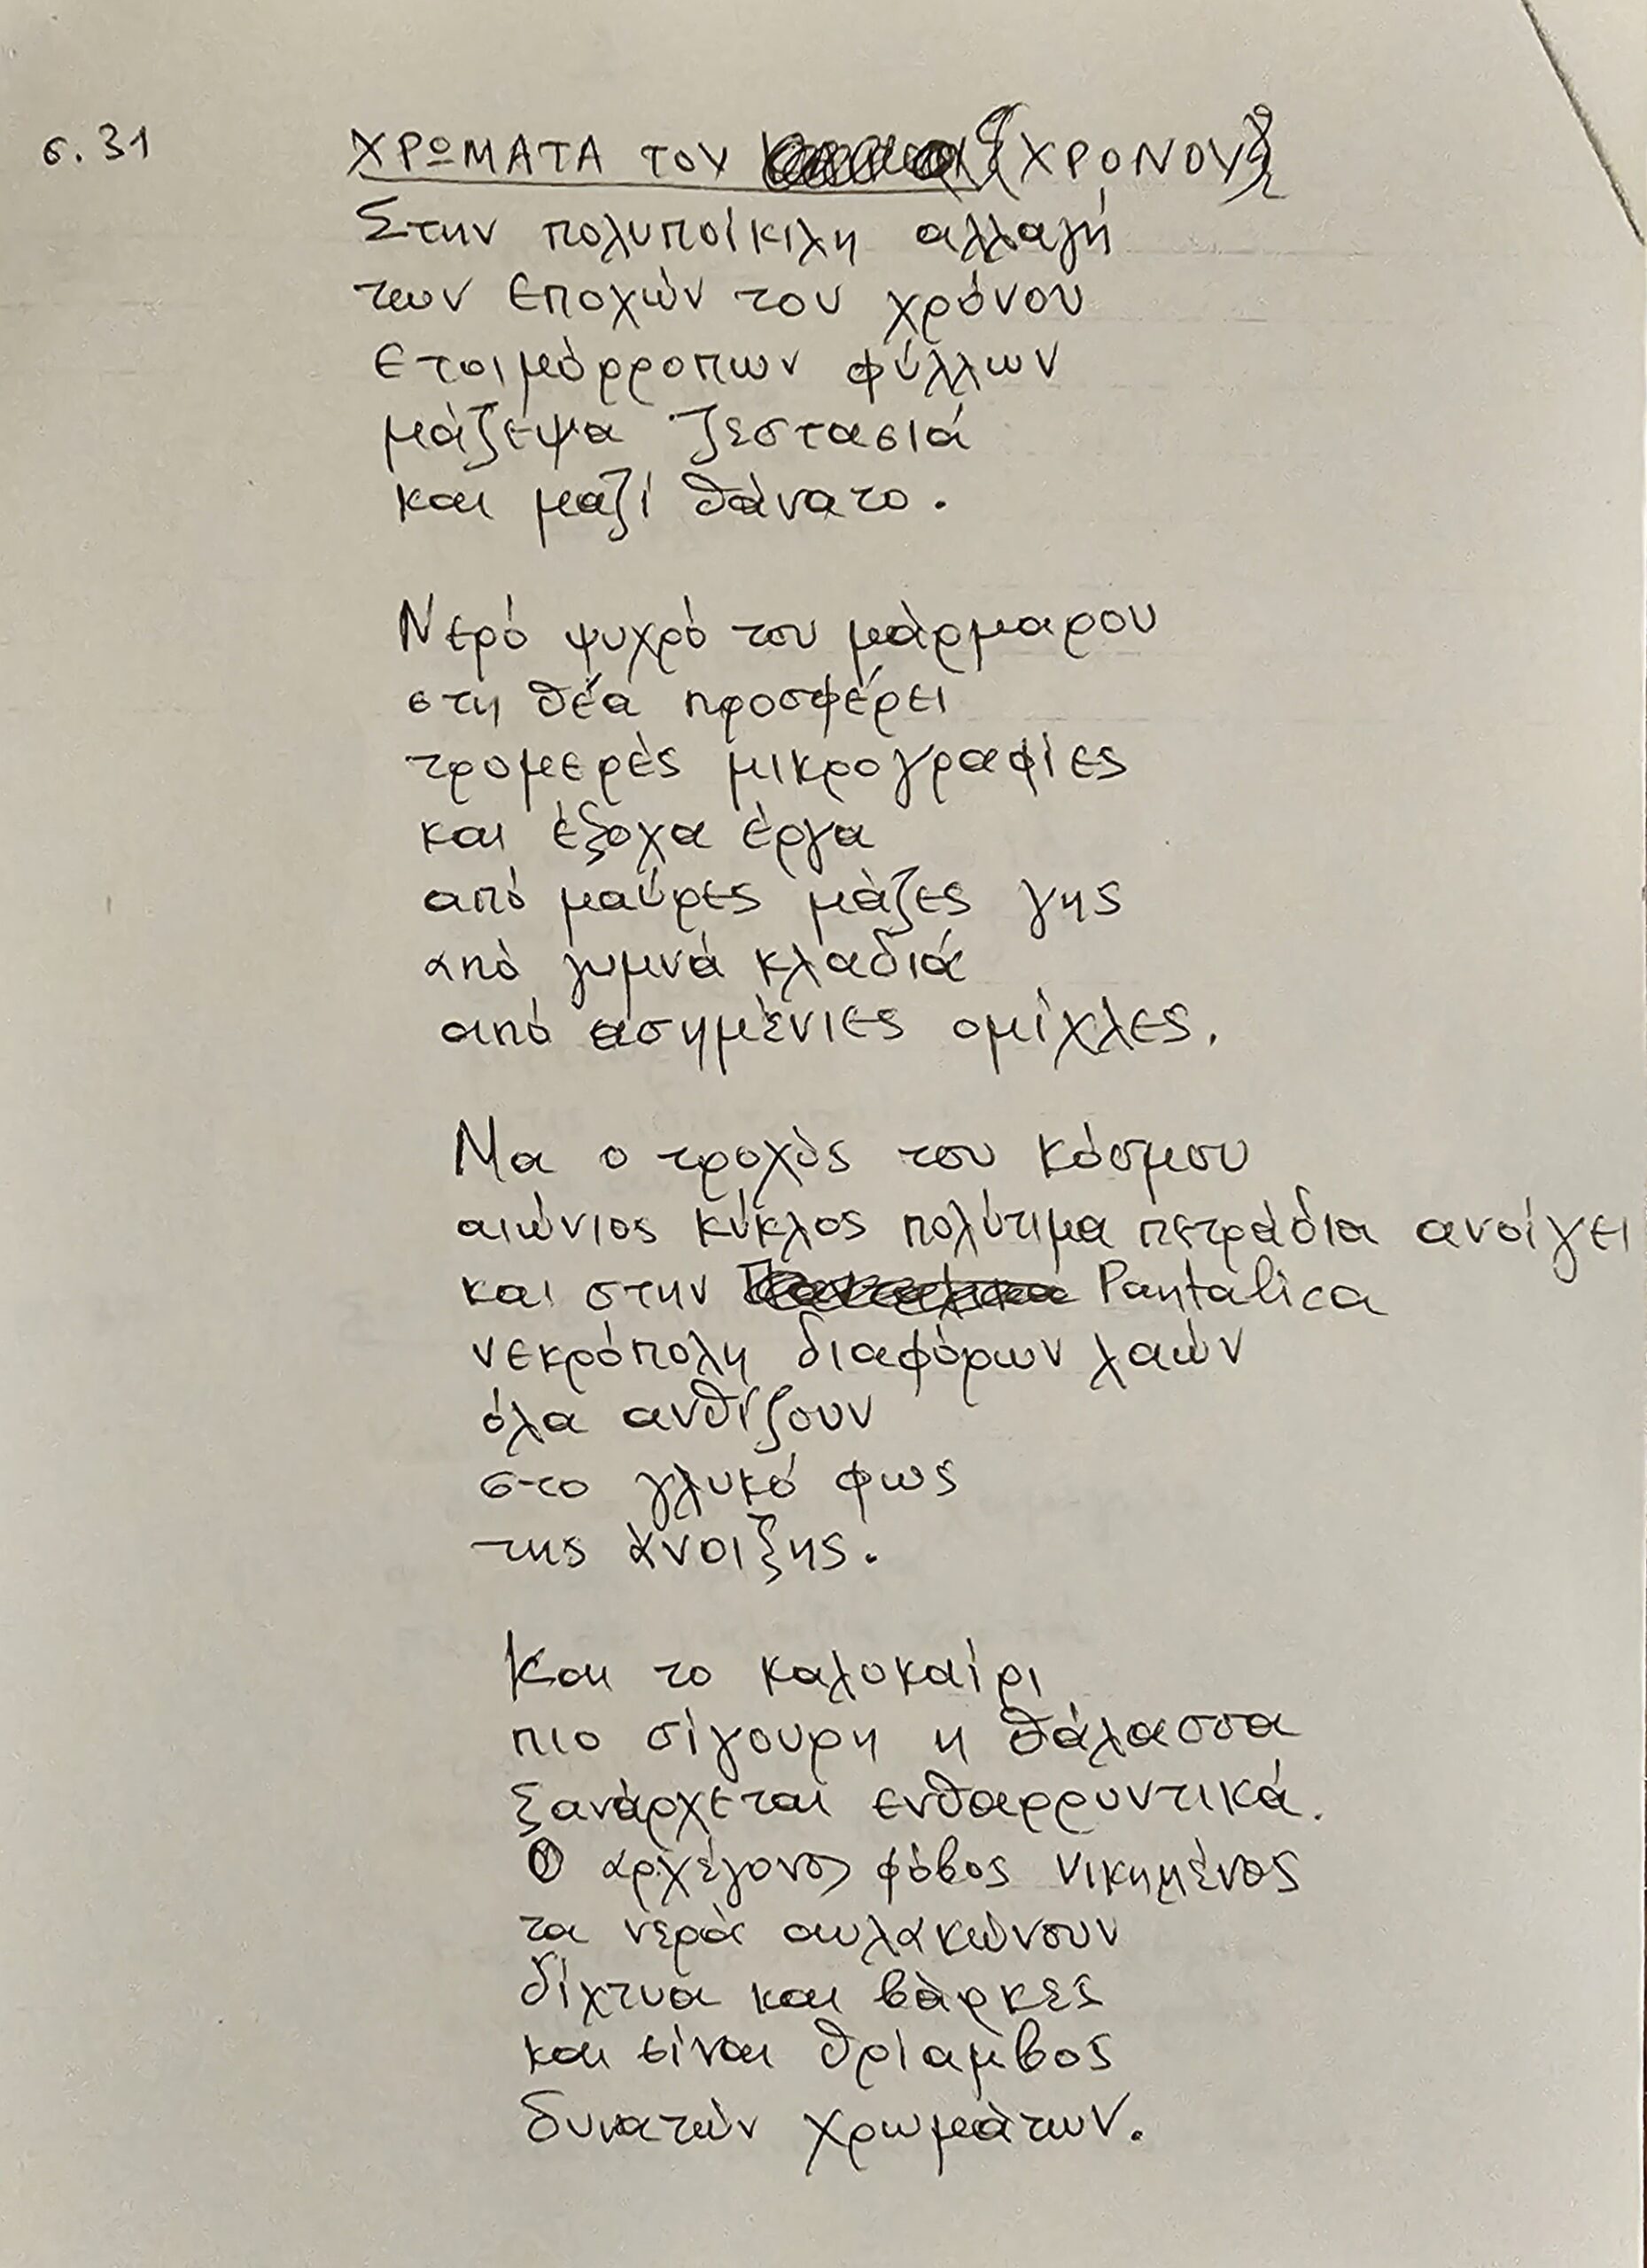 σ. 31 ΧΡΩΜΑΤΑ ΤΟΥ (ΧΡΟΝΟΥ)
Στην πολυποίκιλη αλλαγή
των εποχών του χρόνου
ετοιμόρροπων φύλλων
μάζεψα ζεστασιά
και μαζί θάνατο.
Νερό ψυχρό του μάρμαρου
στη θέα προσφέρει
τρομερές μικρογραφίες
και έξοχα έργα
από μαύρες μάζες γης
από γυμνά κλαδιά
από ασημένιες ομίχλες.
Μα ο τροχός του κόσμου
αιώνιος κύκλος πολύτιμα πετράδια ανοίγει
και στην Pantalica
νεκρόπολη διαφόρων λαών
όλα ανθίζουν
στο γλυκό φως
της άνοιξης.
Και το καλοκαίρι
πιο σίγουρη η θάλασσα
ξανάρχεται ενθαρρυντικά.
Ο αρχέγονος φόβος νικημένος
τα νερά αυλακώνουν
δίχτυα και βάρκες
και είναι θρίαμβος
δυνατών χρωμάτων.